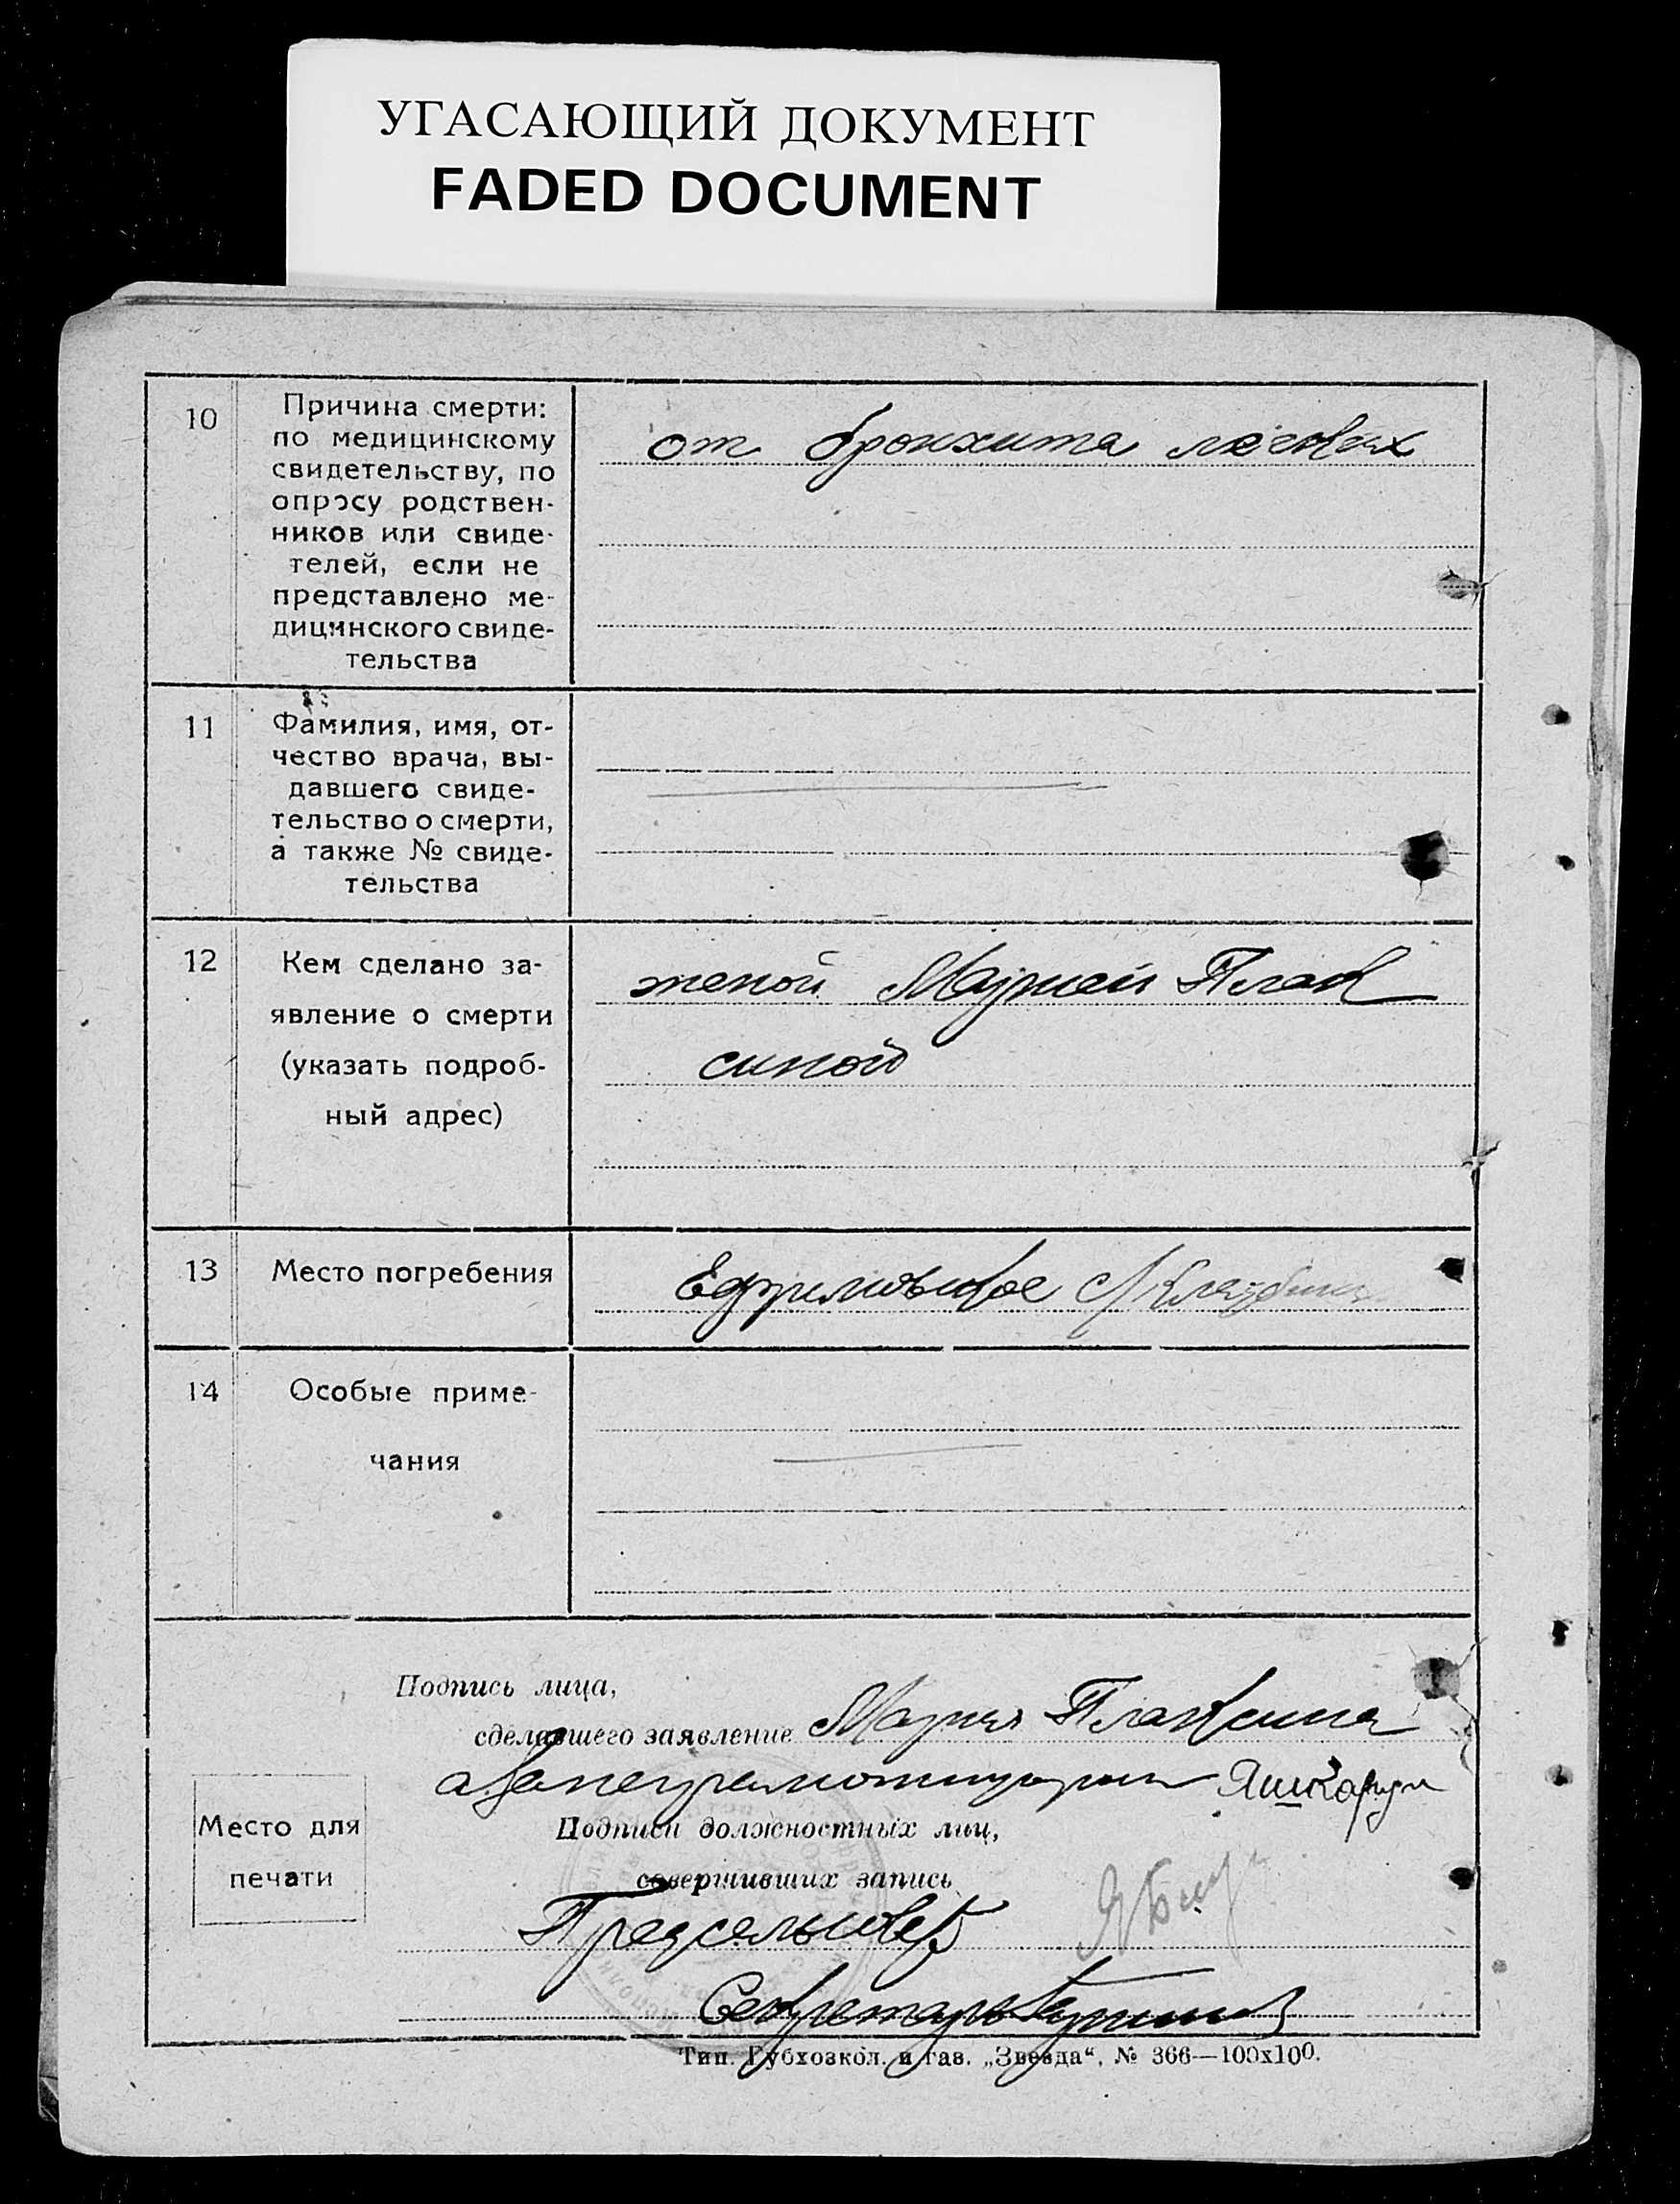 УГАСАЮЩИЙ ДОКУМЕНТ
FADED DOCUMENT
10
Причина смерти:
по медицинскому
свидетельству, по
опросу родствен-
ников или свиде-
телей, если не
представлено ме-
дицинского свиде-
тельства
от бронхита
11
Фамилия, имя, от-
чество врача, вы-
давшего свиде-
тельство о смерти,
а также № свиде-
тельства
12
Кем сделано за-
явление о смерти
(указать подроб-
ный адрес)
женой Марией Плак
синой
13
Место погребения
Ефимовское
14
Особые приме-
чания
Подпись лица,
сделавшего заявление Мария Плаксина
Место для
печати
Подписи должностных лиц,
совершивших запись
Предсельсовет
Секретарь
Тип. Губхозкол. и газ. „Звезда“, № 366—100х100.